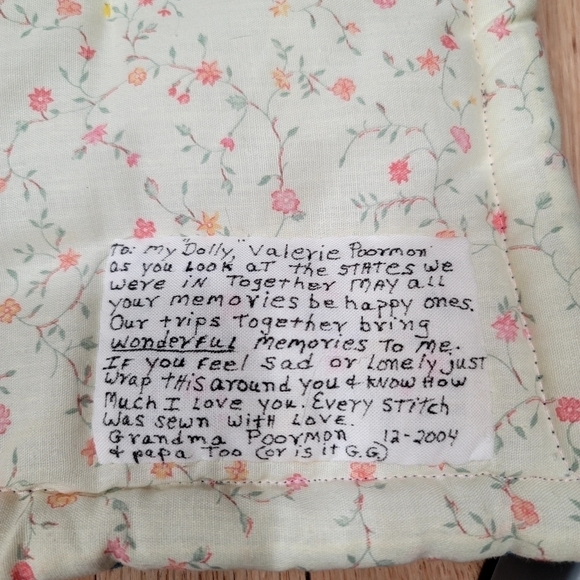 To: My "Dolly," Valerie Poormon
as you Look at the States we
were in Together may all
your memories be happy ones.
Our trips Together bring
wonderful memories to me.
If you feel sad or lonely just
wrap this around you & know how
much I love you. Every stitch
was sewn with love.
Grandma Poormon 12-2004
& papa Too (or is it G.G.)